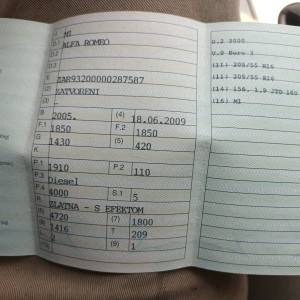 J M1
D.1 ALFA ROMEO
ZAR93200000287587
ZATVORENI -
B 2005. (4) 18.06.2009
F.1 1850 F.2 1850
G 1430 (5) 420
K
P.1 1910 P.2 110
P.3 Diesel
P.4 4000 S.1 5
R ZLATNA - S EFEKTOM
(6) 4720 (7) 1800
(8) 1416 T 209
2 (9) 1
U.2 3000
V.9 Euro 3
(11) 205/55 R16
(11) 205/55 R16
(14) 156, 1.9 JTD
(16) M1